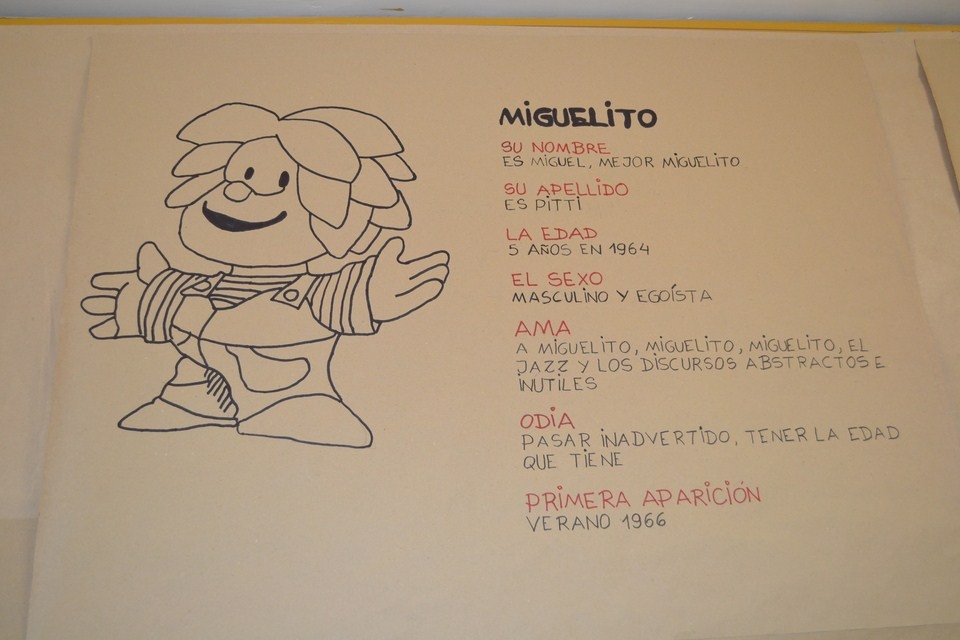 MIGUELITO
SU NOMBRE
ES MIGUEL, MEJOR MIGUELITO
SU APELLIDO
ES PITTI
LA EDAD
5 AÑOS EN 1964
EL SEXO
MASCULINO Y EGOÍSTA
AMA
A MIGUELITO, MIGUELITO, MIGUELITO, EL
JAZZ Y LOS DISCURSOS ABSTRACTOS E
INUTILES
ODIA
PASAR INADVERTIDO, TENER LA EDAD
QUE TIENE
PRIMERA APARICIÓN
VERANO 1966